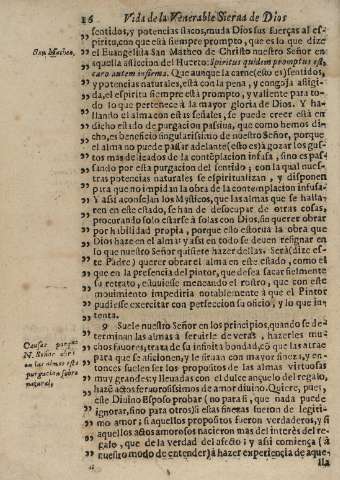 16 Vida de la Venerable Sierva de Dios
San Matheo.
Causas porque
N. Señor obra
en las almas esta
purgacion sobre
natural,
sentidos, y potencias flacos, muda Dios sus fuerças al es-
piritu, con que està siempre prompto, que es lo que dize
el Euangelista San Matheo de Christo nuestro Señor en
aquella afliccion del Huerto: Spiritus quidem promptus est,
caro autem infirma. Que aunque la carne (esto es) sentidos,
y potencias naturales, està con la pena, y congoja afligi-
da, el espiritu siempre està prompto, y valiente para to-
do lo que pertenece à la mayor gloria de Dios. Y ha-
llando el alma con estas señales, se puede creer està en
dicho estado de purgacion passiua, que como hemos di-
cho, es beneficio singularissimo de nuestro Señor, porque
el alma no puede passar adelante (esto es) à gozar los gus-
tos mas delicados de la contēplacion infusa, sino es pas-
sando por esta purgacion del sentido, con la qual nues-
tras potencias naturales se espiritualizan, y disponen
para que no impidan la obra de la contemplacion infusa.
Y assi aconsejan los Mysticos, que las almas que se halla-
ren en este estado, se han de desocupar de otras cosas,
procurando solo estarse à solas con Dios, sin querer obrar
por habilidad propia, porque ello estorua la obra que
Dios haze en el alma y assi en todo se deuen resignar en
lo que nuestro Señor quisiere hazer dellas. Serà (dize es-
te Padre) querer obrar el alma en este estado, como el
que en la presencia del pintor, que desea sacar fielmente
su retrato, estuuiesse meneando el rostro, que con este
mouimiento impediria notablemente à que el Pintor
pudiesse exercitar con perfeccion su oficio, y lo que in-
tenta.
9 Suele nuestro Señor en los principios, quando se de-
terminan las almas à seruirle de veras, hazerles mu-
chos fauores, trata de su infinita bondad, cõ que las atrae
para que se aficionen, y le siruan con mayor fineza, y en-
tonces suelen ser los propositos de las almas virtuosas
muy grandes: y lleuadas con el dulce anzuelo del regalo,
hazē actos feruorosissimos de amor diuino. Quiere, pues,
este Diuino Esposo probar (no para si, que nada puede
ignorar, sino para otros) si estas finezas fueron de legiti-
mo amor; si aquellos propositos fueron verdaderos, y si
aquellos actos amorosos nacieron mas del interès del re-
galo, que de la verdad del afecto: y assi comiença (à
nuestro modo de entender) à hazer experiencia de aque-
lla